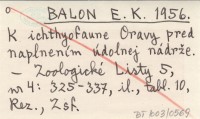 BALON E. K. 1956.
K ichthyofaune Oravy pred
naplnením údolnej nádrže.
— Zoologické Listy 5,
nr 4: 325-337, il., tabl. 10,
Rez., Zsf.